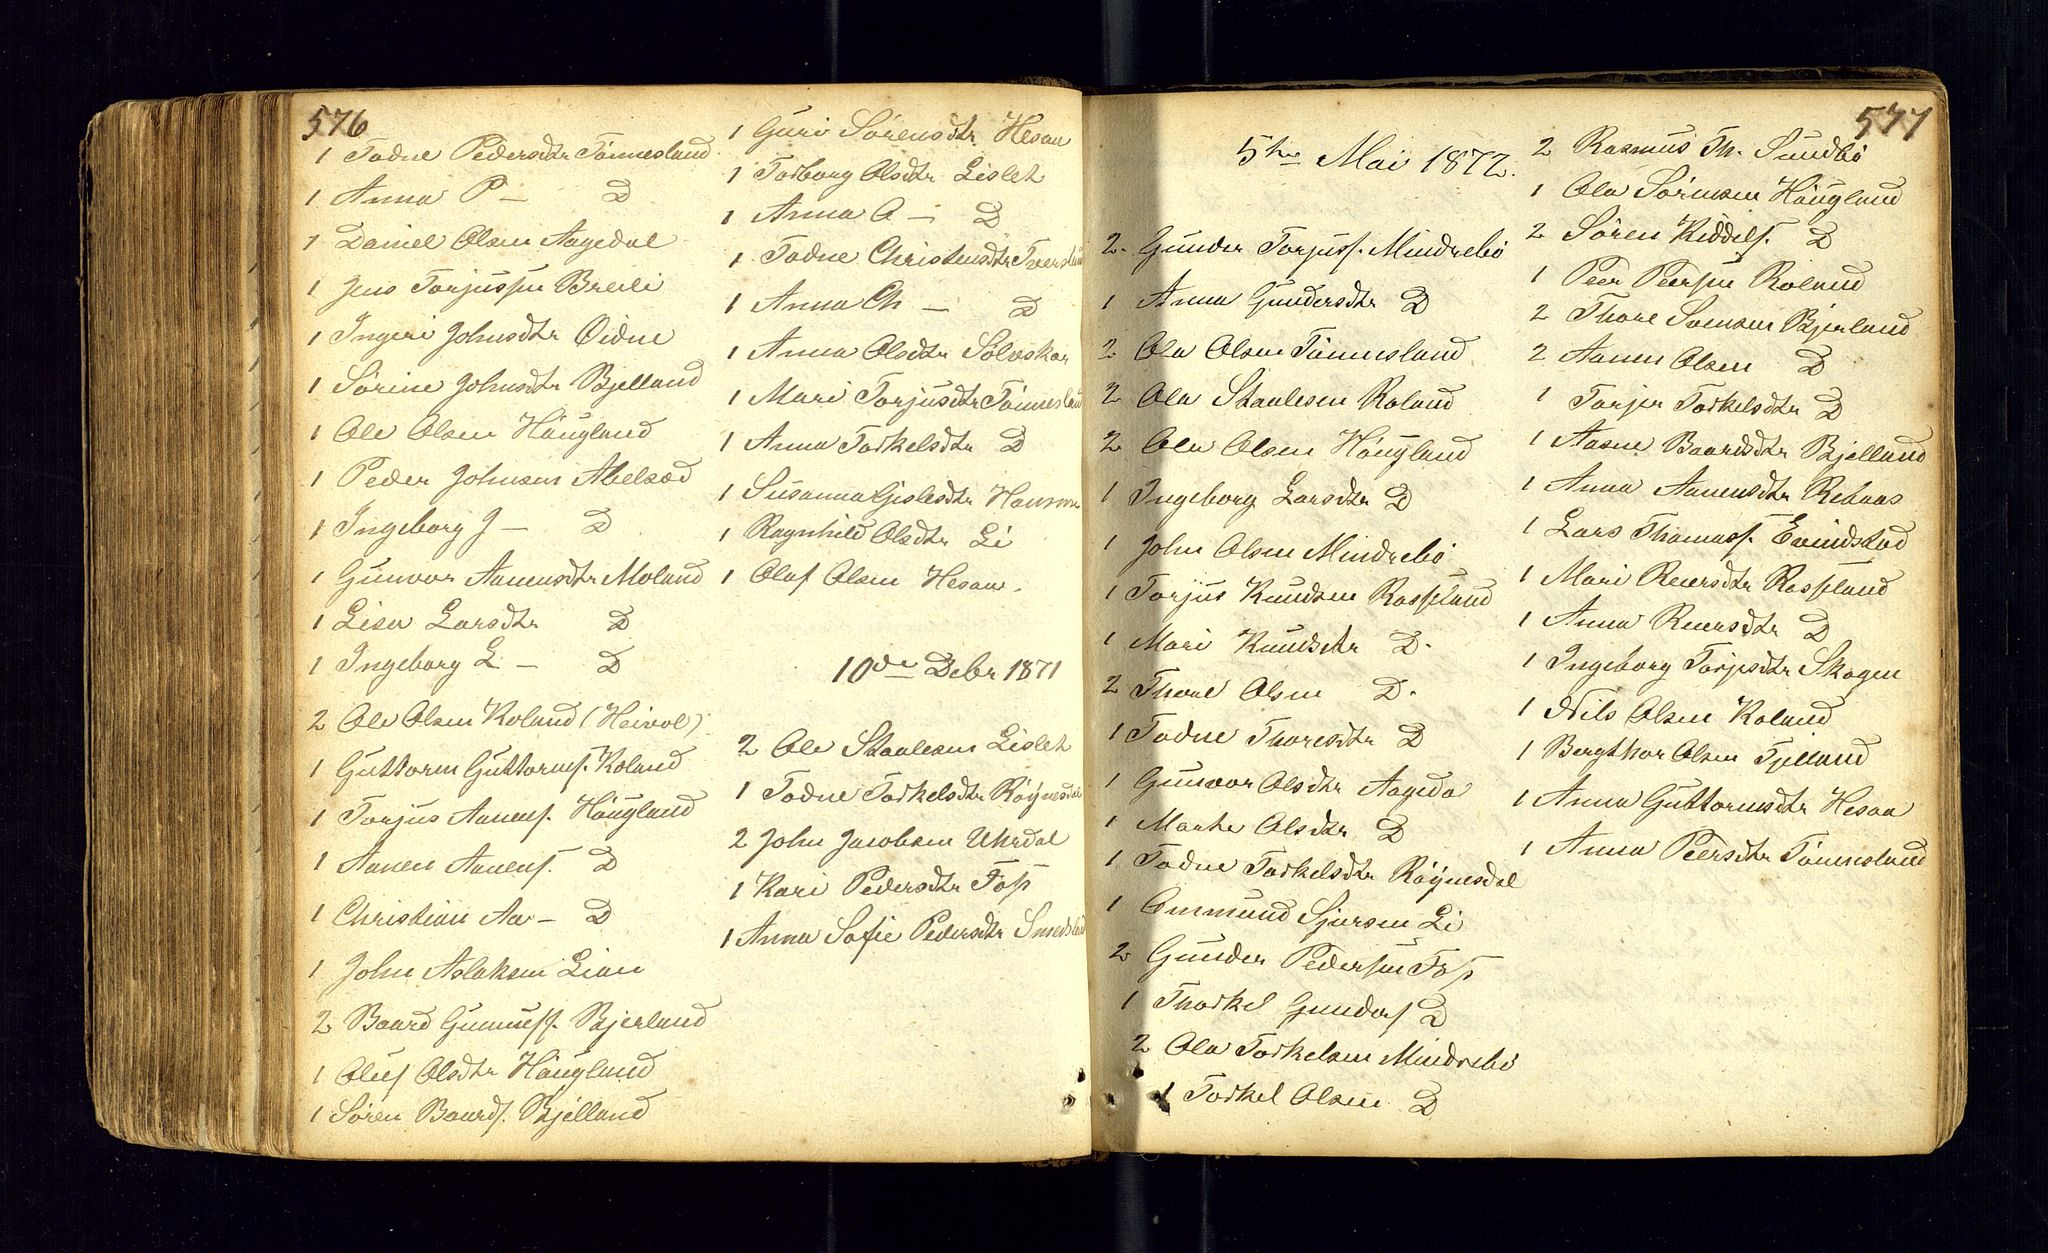 576
1 Todne Pedersdtr Tönnesland
1 Anna P — D
1 Daniel Olsen Aagedal
1 Jens Torjussen Breili
1 Ingeri Johnsdtr Öidne
1 Sörine Johnsdtr Bjelland
1 Ole Olsen Höugland
1 Peder Johnsen Abelsæd
1 Ingeborg J — D
1 Gunvor Aanensdtr Moland
1 Lisa Larsdtr D
1 Ingeborg L — D
2 Ole Olsen Roland (Heivol)
1 Guttorm Guttormsf. Roland
1 Torjus Aanensf. Höugland
1 Aanen Aanensf. D
1 Christian Aa — D
1 John Aslaksen Lian
2 Baard Gunnusf. Bjerland
1 Oluf Olsdtr Höugland
1 Sören Baardsf. Bjelland
1 Guri Sörensdtr Hesaa
1 Torborg Olsdtr Lislet
1 Anna O — D
1 Todne Christensdtr Tversland
1 Anna Ch — D
1 Anna Olsdtr Solveskar
1 Mari Torjusdtr Tönnesland
1 Anna Torkelsdtr D
1 Susanna Gislesdtr
1 Ragnhild Olsdtr Li
1 Olaf Olsen Hesaa.
10de Debr 1871
2 Ole Staalesen Lislet
1 Todne Torkelsdtr Röynesdal
2 John Jacobsen Uhrdal
1 Kari Pedersdtr Foss
1 Anna Sofie Pedersdtr Smedsland
577
5te Mai 1872.
2. Gunder Torjusf. Mindrebö
1 Anna Gundersdtr D
2 Ola Olsen Tönnesland
2 Ola Staalesen Roland
2 Ola Olsen Höugland
1 Ingeborg Larsdtr D
1 John Olsen Mindrebö
1 Torjus Knudsen Rossland
1 Mari Knudsdtr D.
2 Thore Olsen D.
1 Todne Thoresdtr D
1 Gunvor Olsdtr Aageda
1 Marte Olsdtr D
1 Todne Torkelsdtr Röynesdal
1 Ommund Sjursen Li
2 Gunder Pedersen Foss
1 Thorkel Gundersf D
2 Ola Torkelsen Mindrebö
1 Torkel Olsen D
2 Rasmus Th. Sundbö
1 Ola Sörensen Höugland
2 Sören Kiddelsf. D
1 Peer Peersen Roland
2 Thore Svensen Bjerland
2 Aanen Olsen D
1 Torjer Torkelsdtr D
1 Aasne Baardsdtr Bjelland
1 Anna Aanensdtr Rebaas
1 Lars Thomasf. Evindstad
1 Mari Reiersdtr Rossland
1 Anna Reiersdtr D
1 Ingeborg Torjusdtr Skogen
1 Nils Olsen Roland
1 Bergthor Olsen Tjelland
1 Anna Guttormsdtr Hesaa
1 Anna Peersdtr Tönnesland